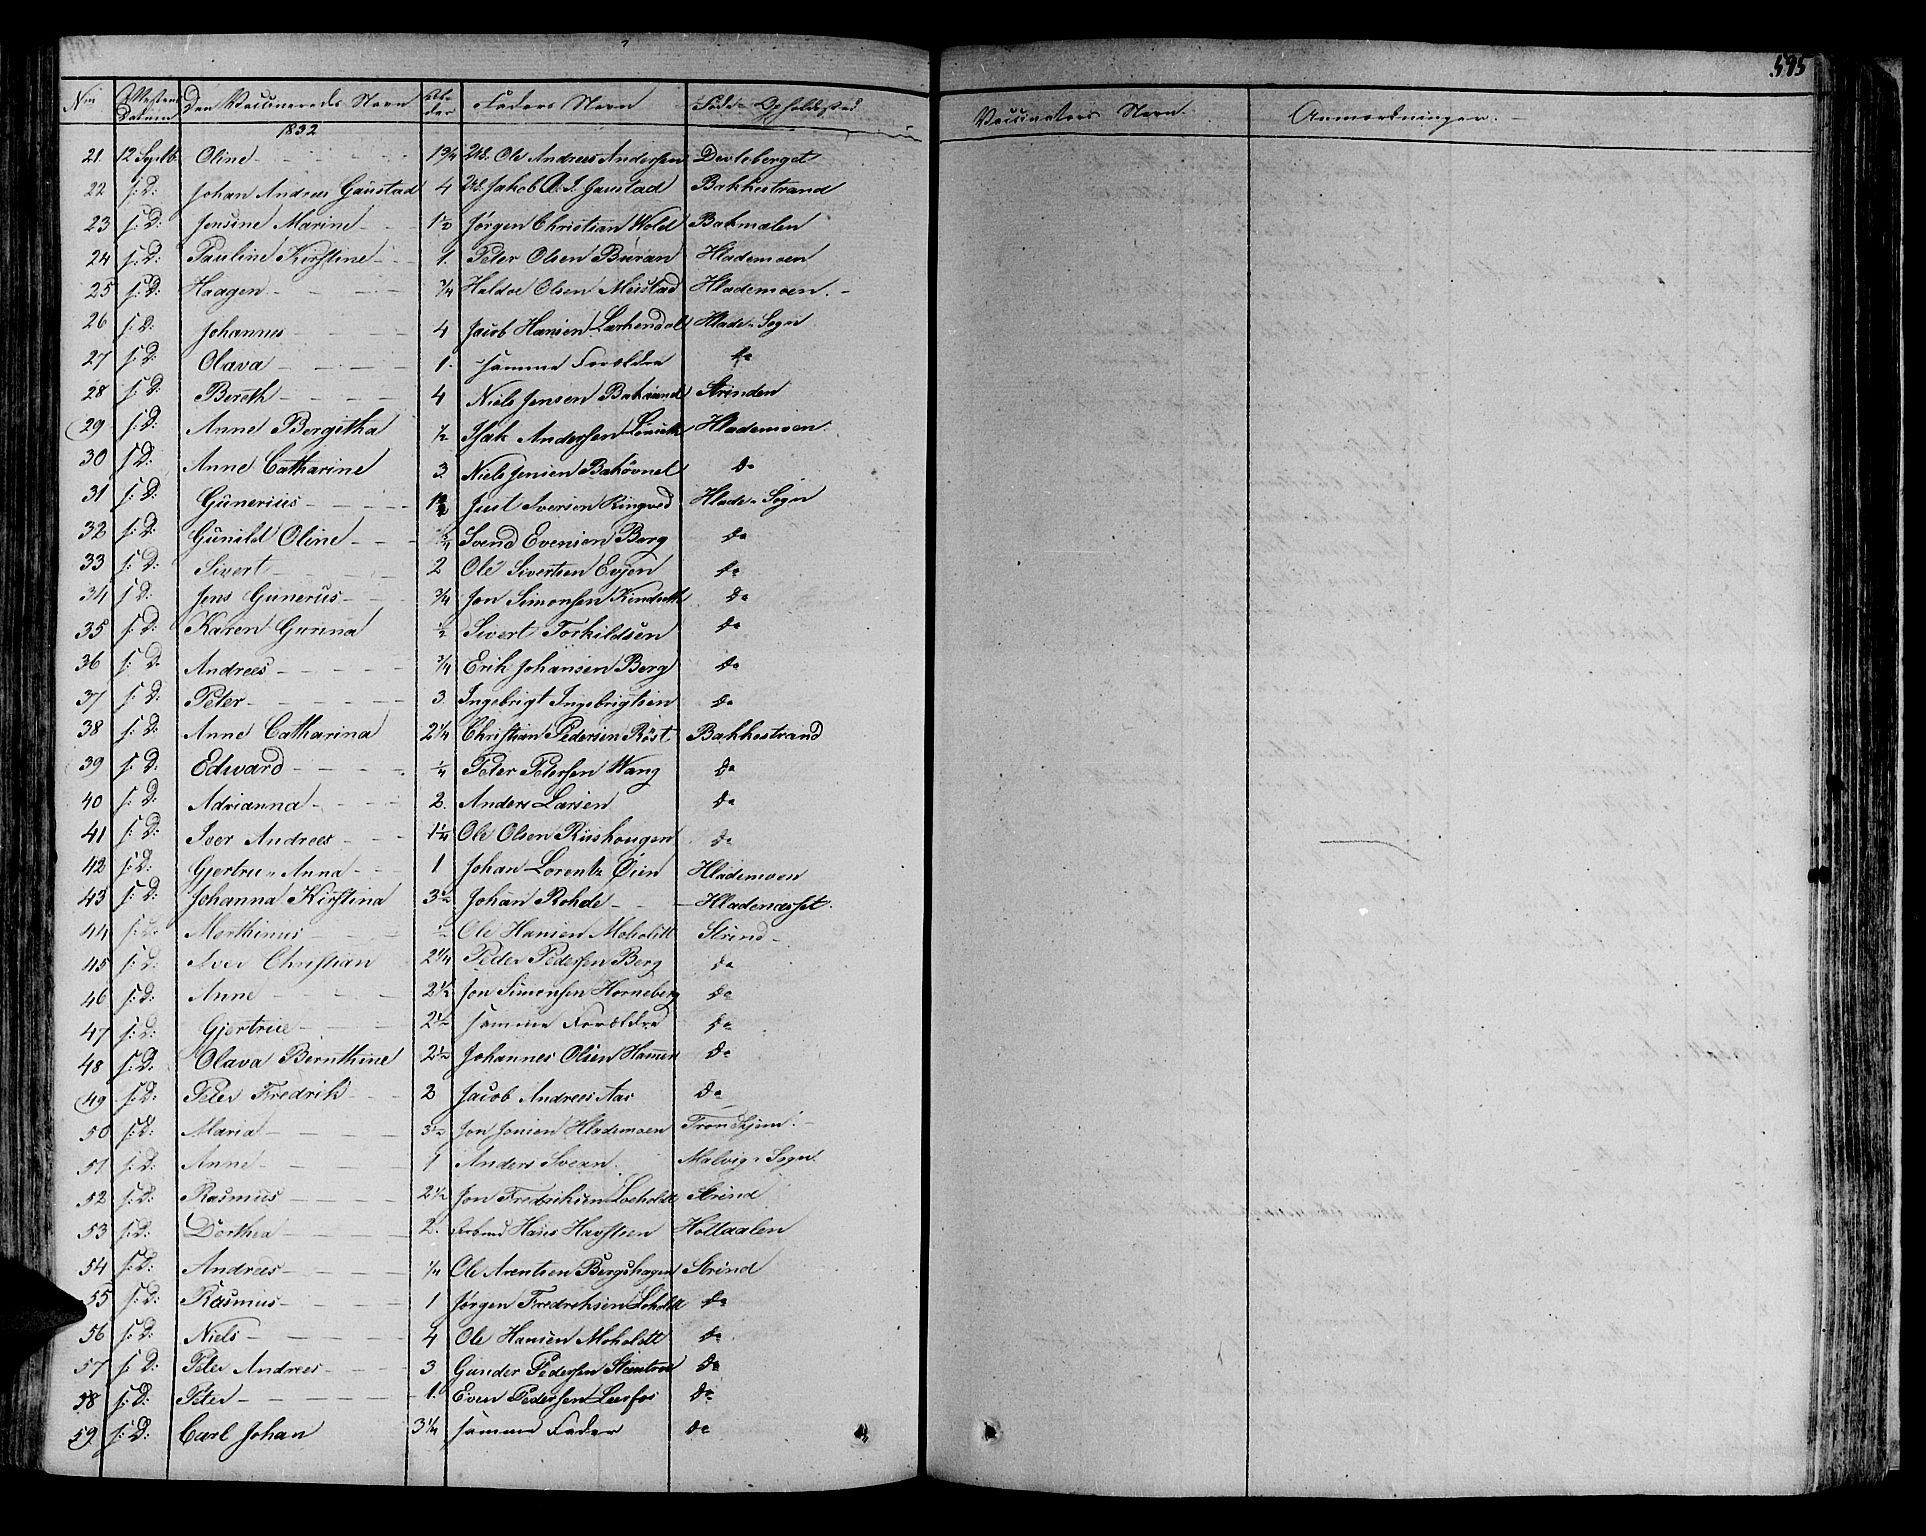 595
Nm Attestens Datum Den Vaccineredes Navn Alder Faders Navn Føde- Opholdssted Vaccinators Navn. Anmærkninger.
1832
21 12 Septb Oline 1 3/4 Ole Andreas Andersen Devleberget
22 s: D: Johan Andreas Gaustad 4 Jakob A. J. Gaustad Bakkestrand
23 s: D: Jensine Marine 1 1/2 Jørgen Christian Wold Bakmælen
24 s: D: Pauline Kirstine 1. Peter Olsen Buran Hlademoen
25 s: D: Haagen 3/4 Haldoe Olsen Mustad Hlademoen.
26 s: D: Johannes 4 Jacob Hansen Lærhendal Hlade-Sogn
27 s: D: Olava 1. samme Forældre do
28 s: D: Bereth 4 Niels Jensen Bakaune Strinden
29 s: D: Anne Bergitha 1/2 Isak Andersen Hlademoen.
30 s D: Anne Catharine 3. Niels Jensen do
31 s: D: Gunerius 1 1/2 Just Iversen Ringved Hlade-Sogn
32 s: D: Gunild Oline 3/4 Svend Evensen Berg do
33 s: D: Sivert 2 Ole Sivertsen Evjen do
34 s D: Jens Gunerus 3/4 Jon Simonsen do
35 s: D: Karen Gurina 1/2 Sivert Torkildsen do
36 s: D: Andreas 3/4 Erik Johansen Berg do
37 s: D: Peter 3. Ingebrigt Ingebrigtsen do
38 s: D: Anne Catharina 2 1/4 Christian Pedersen Röst Bakkestrand
39 s: D: Edward 1/4 Peter Petersen Wang do
40 s: D: Adrianna 2. Anders Larsen do
41 s: D: Iver Andrees 1 1/4 Ole Olsen Riishougen do
42 s: D: Gjertru-Anna 1 Johan Lorentz Øien Hlademoen
43 s: D: Johanna Kirstina 3 1/2 Johan Rohde Hladenæsset.
44 s: D: Marthinus 1/2 Ole Hansen Moholdt Strind
45 s: D: Iver Christian 2 1/4 Peder Pedersen Berg do
46 s: D: Anne 2 1/2 Jon Simonsen Horneberg do
47 s: D: Gjertrue 2 1/2 samme Forældre do
48 s: D: Olava Bernthine 2 1/2 Johannes Olsen Hammer do
49 s: D: Peter Fredrik 2 Jacob Andrees Aas do
50 s: D: Maria 3 1/2 Jon Jonsen Hlademoen Trondhjem.
51 s: D: Anne 1 Anders Svean. Malvig-Sogn.
52 s: D: Rasmus 2 1/2 Jon Fredriksen Loeholdt Strind
53 s: D: Dorthea 2. Hans Havstein Holtaalen
54 s: D: Andreas 1/4 Ole Arentsen Bergshagen Strind
55 s: D: Rasmus 1 Jørgen Fredreksen Loholdt do
56 s: D: Niels 4 Ole Hansen Moholdt do
57 s D: Peter Andreas 3 Gunder Pedersen do
58 s: D: Peter 1. Even Pedersen Leerfos do
59 s: D: Carl Johan 3 1/4 samme Fader do